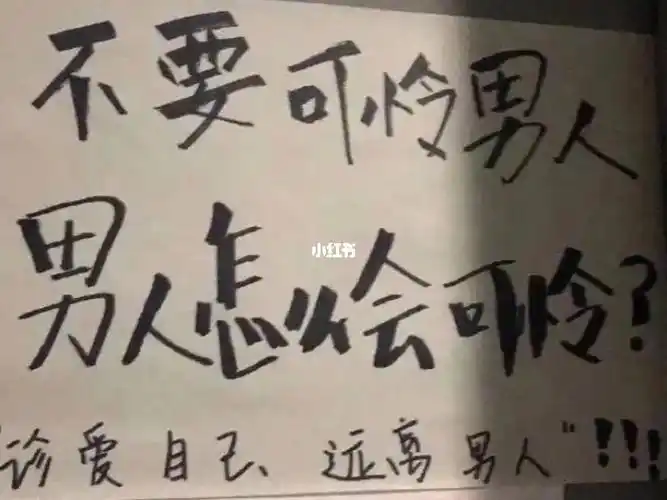 不要可怜男人
小红书
男人怎么会可怜?
"诊爱自己、远离男人"!!!